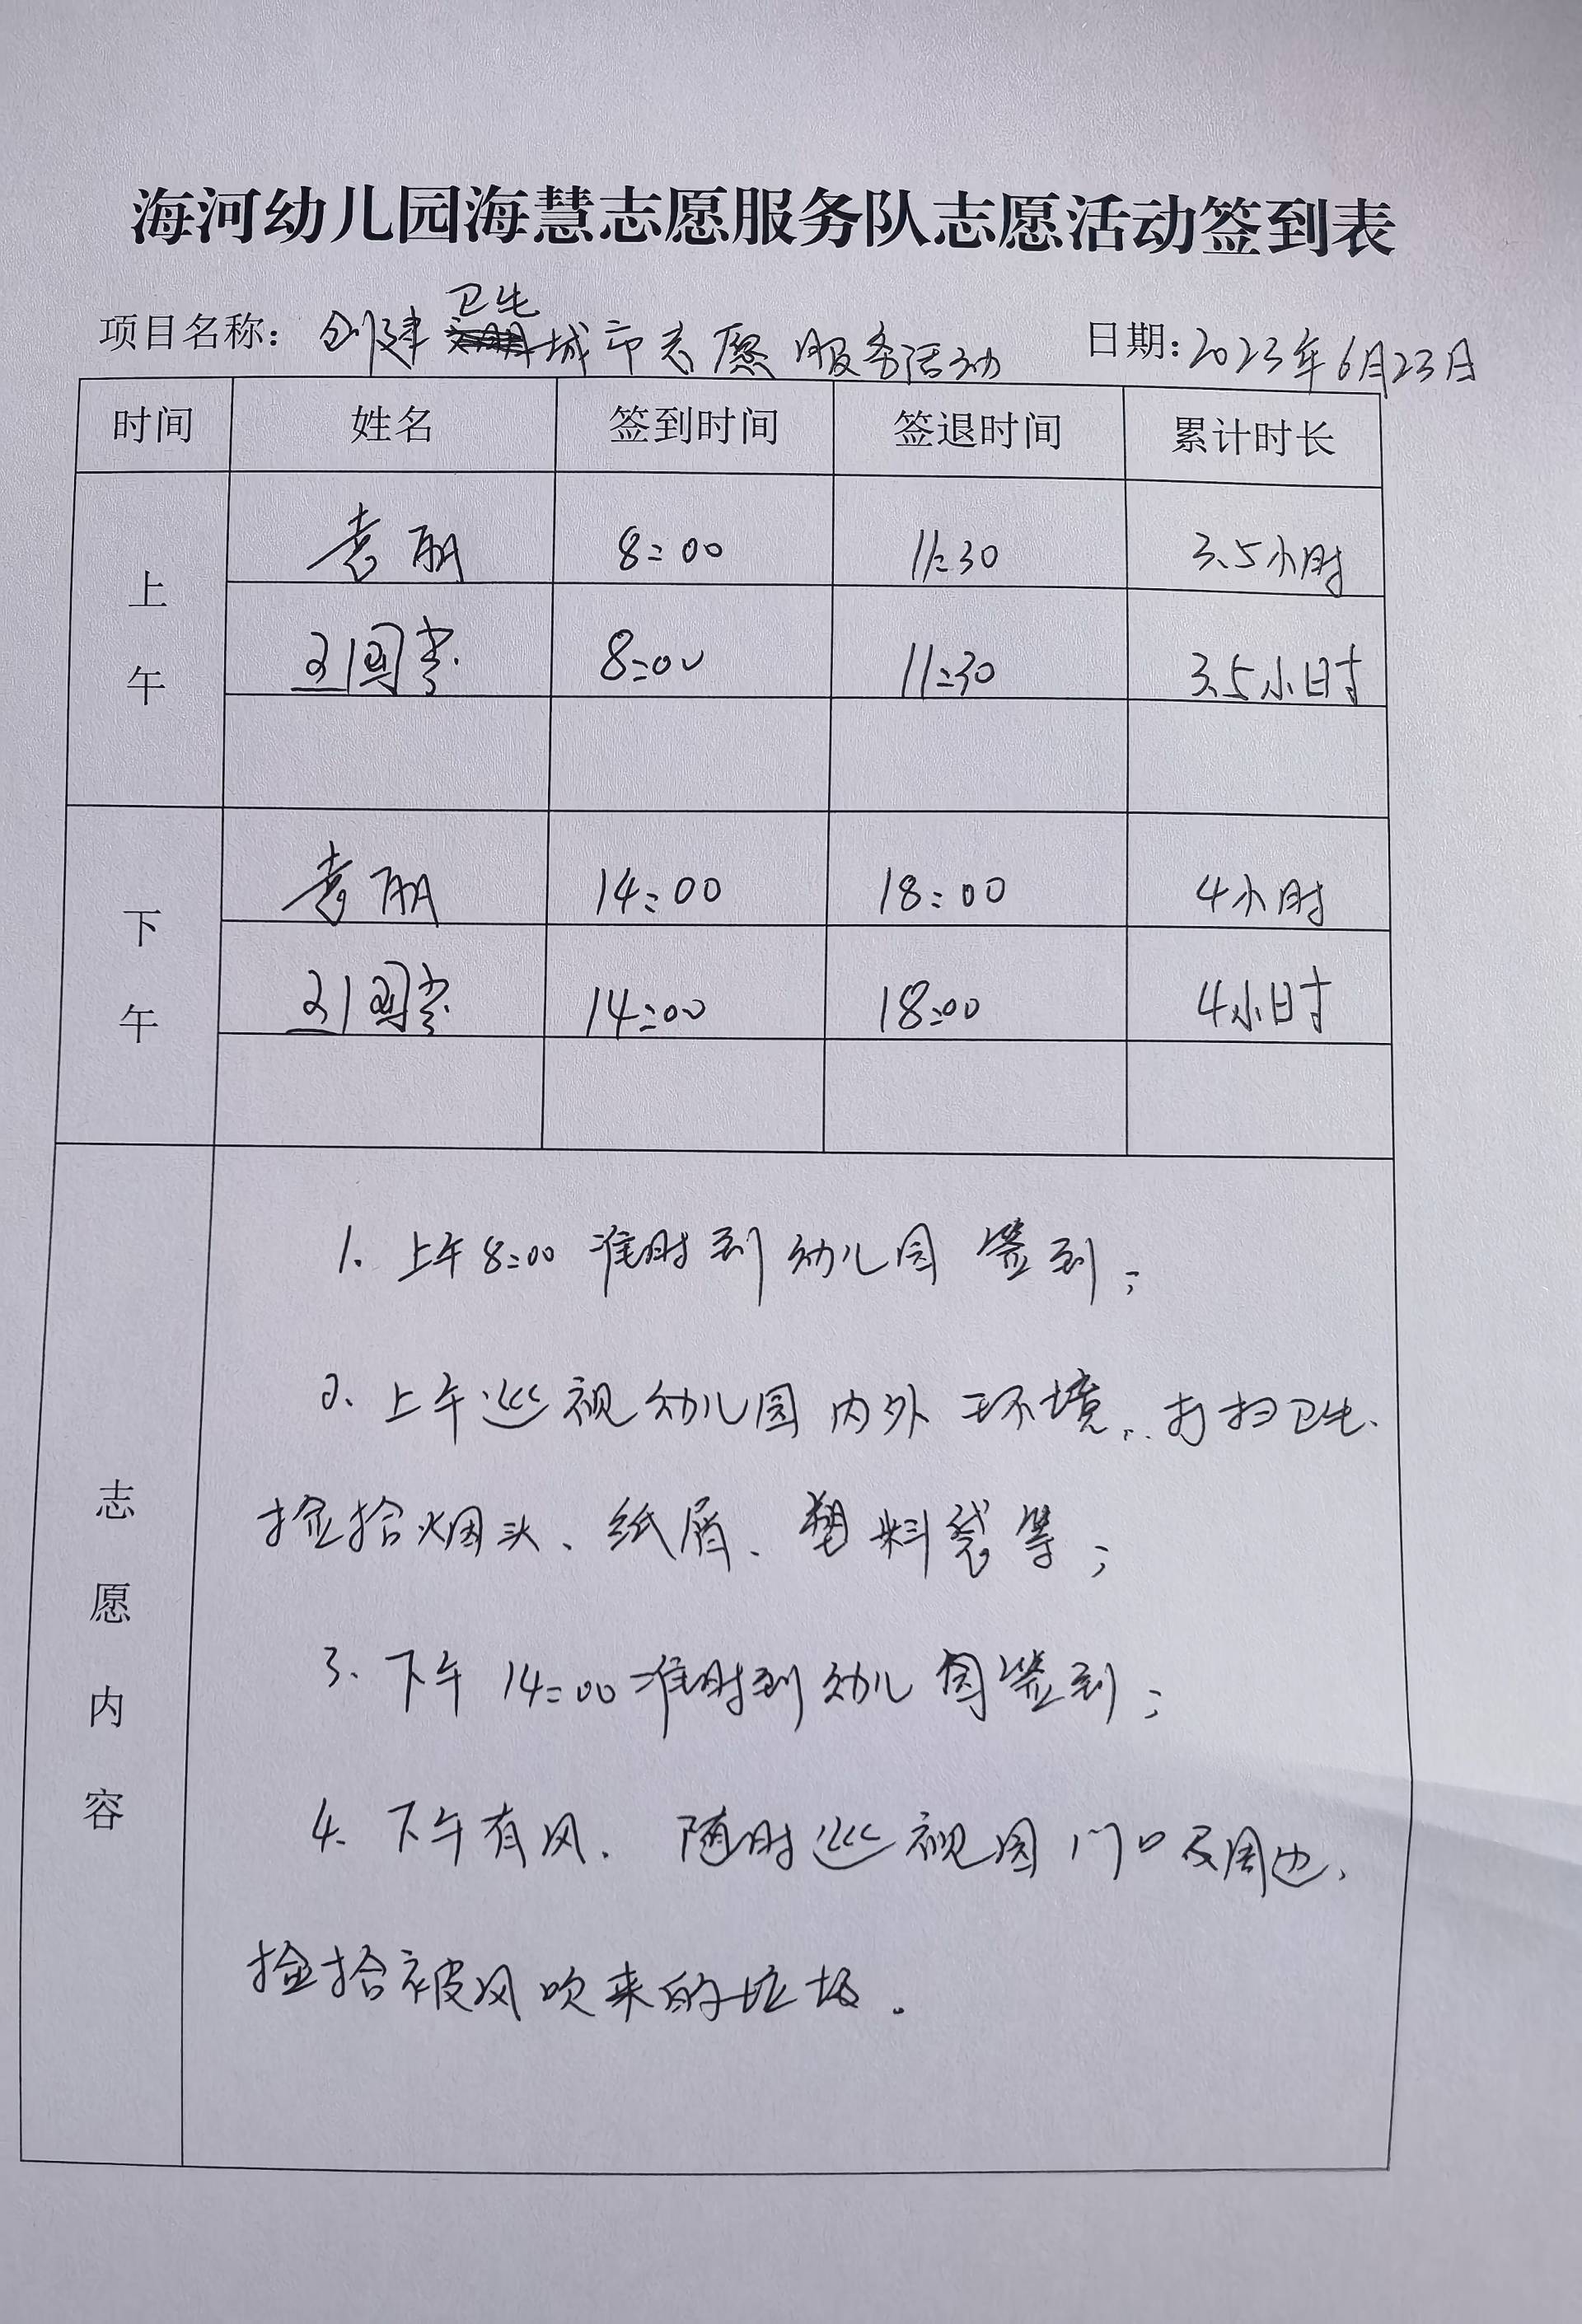 海河幼儿园海慧志愿服务队志愿活动签到表
项目名称：创建卫生城市志愿服务活动 日期：2023年6月23日
时间 姓名 签到时间 签退时间 累计时长
上午
袁丽 8:00 11:30 3.5小时
8:00 11:30 3.5小时
下午
袁丽 14:00 18:00 4小时
14:00 18:00 4小时
志愿内容
1. 上午8:00准时到幼儿园签到；
2. 上午巡视幼儿园内外环境，打扫卫生、
捡拾烟头、纸屑、塑料袋等；
3. 下午14:00准时到幼儿园签到；
4. 下午有风，随时巡视园门口及周边，
捡拾被风吹来的垃圾。